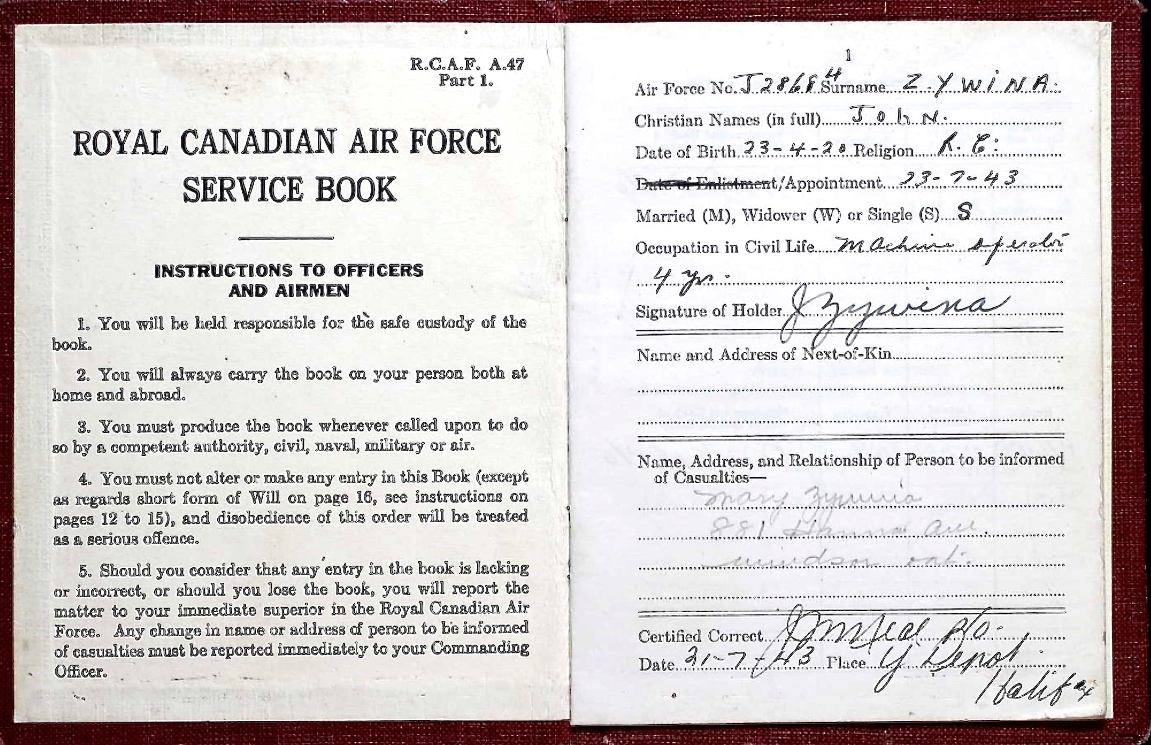 R.C.A.F. A.47
Part 1.
ROYAL CANADIAN AIR FORCE
SERVICE BOOK
INSTRUCTIONS TO OFFICERS
AND AIRMEN
1. You will be held responsible for the safe custody of the
book.
2. You will always carry the book on your person both at
home and abroad.
3. You must produce the book whenever called upon to do
so by a competent authority, civil, naval, military or air.
4. You must not alter or make any entry in this Book (except
as regards short form of Will on page 16, see instructions on
pages 12 to 15), and disobedience of this order will be treated
as a serious offence.
5. Should you consider that any entry in the book is lacking
or incorrect, or should you lose the book, you will report the
matter to your immediate superior in the Royal Canadian Air
Force. Any change in name or address of person to be informed
of casualties must be reported immediately to your Commanding
Officer.
1
Air Force No. J28684 Surname ZYWINA.
Christian Names (in full) John.
Date of Birth 23-4-20 Religion R.C.
Date of Enlistment/Appointment 23-7-43
Married (M), Widower (W) or Single (S) S
Occupation in Civil Life Machine operator
4 yrs.
Signature of Holder J Zywina
Name and Address of Next-of-Kin
Name, Address, and Relationship of Person to be informed
of Casualties—
Mary Zywina
881 Hanna Ave.
Windsor Ont.
Certified Correct P/O.
Date 31-7-43 Place Y Depot
Halifax